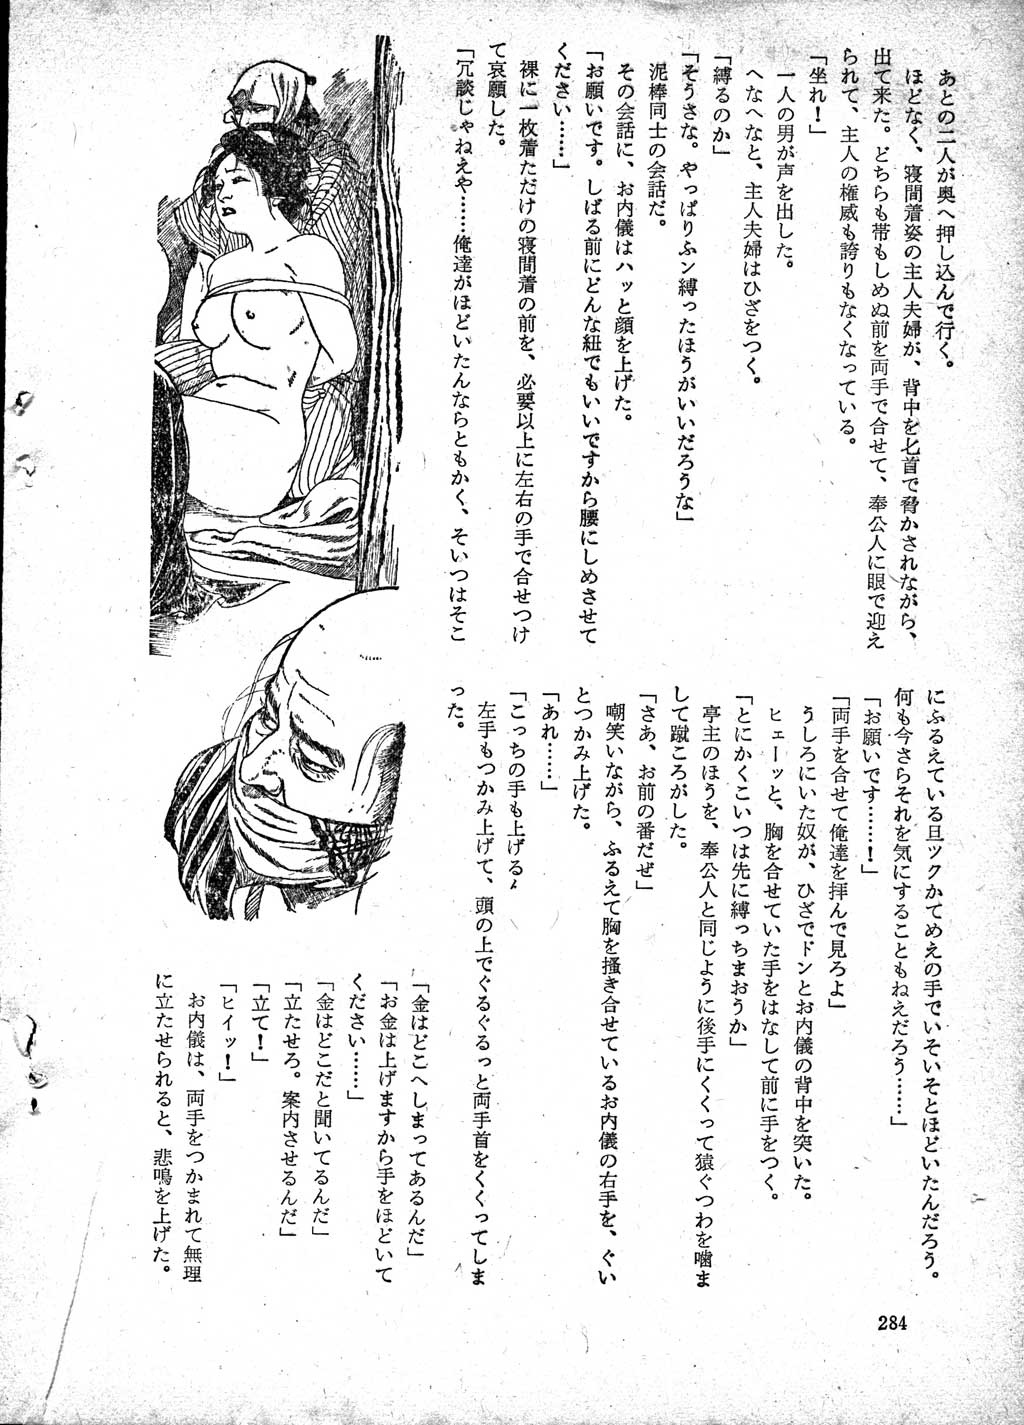 あとの二人が奥へ押し込んで行く。
ほどなく、寝間着姿の主人夫婦が、背中を匕首で脅かされながら、
出て来た。どちらも帯もしめぬ前を両手で合せて、奉公人に眼で迎え
られて、主人の権威も誇りもなくなっている。
「坐れ！」
一人の男が声を出した。
へなへなと、主人夫婦はひざをつく。
「縛るのか」
「そうさな。やっぱりふン縛ったほうがいいだろうな」
泥棒同士の会話だ。
その会話に、お内儀はハッと顔を上げた。
「お願いです。しばる前にどんな紐でもいいですから腰にしめさせて
ください……」
裸に一枚着ただけの寝間着の前を、必要以上に左右の手で合せつけ
て哀願した。
「冗談じゃねえや……俺達がほどいたんならともかく、そいつはそこ
にふるえている旦ツクかてめえの手でいそいそとほどいたんだろう。
何も今さらそれを気にすることもねえだろう……」
「お願いです……！」
「両手を合せて俺達を拝んで見ろよ」
うしろにいた奴が、ひざでドンとお内儀の背中を突いた。
ヒェーッと、胸を合せていた手をはなして前に手をつく。
「とにかくこいつは先に縛っちまおうか」
亭主のほうを、奉公人と同じように後手にくくって猿ぐつわを噛ま
して蹴ころがした。
「さあ、お前の番だぜ」
嘲笑いながら、ふるえて胸を掻き合せているお内儀の右手を、ぐい
とつかみ上げた。
「あれ……」
「こっちの手も上げる
左手もつかみ上げて、頭の上でぐるぐるっと両手首をくくってしま
った。
「金はどこへしまってあるんだ」
「お金は上げますから手をほどいて
ください……」
「金はどこだと聞いてるんだ」
「立たせろ。案内させるんだ」
「立て！」
「ヒイッ！」
お内儀は、両手をつかまれて無理
に立たせられると、悲鳴を上げた。
284